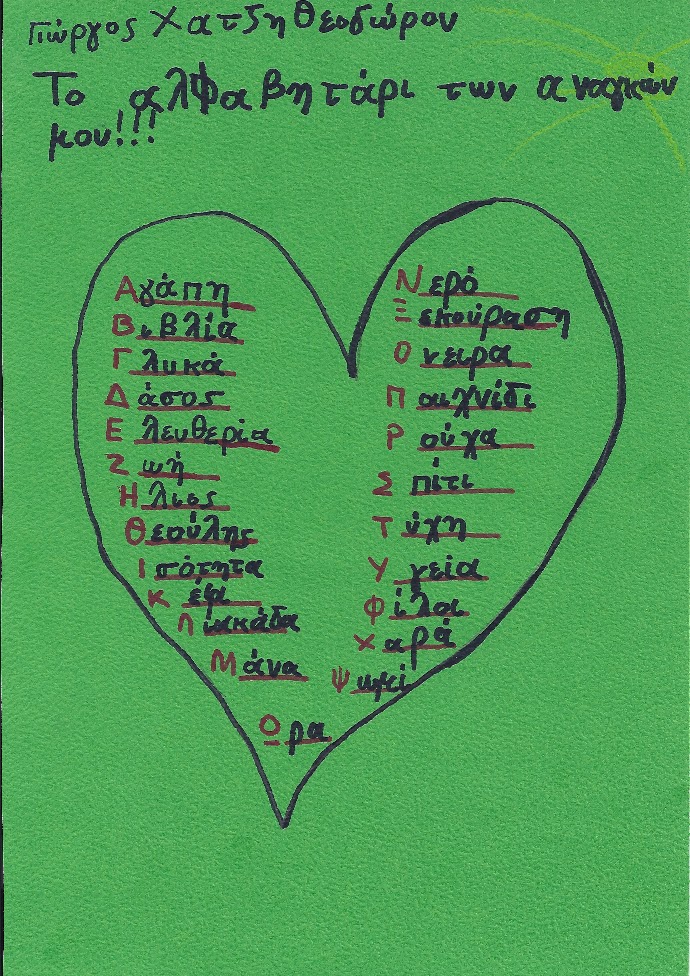 Γιώργος Χατζηθεοδώρου
Το αλφαβητάρι των αναγκών
μου!!!
Αγάπη
Βιβλία
Γλυκά
Δάσος
Ελευθερία
Ζωή
Ηλιος
Θεούλης
Ισότητα
Κέφι
Λιακάδα
Μάνα
Νερό
Ξεκούραση
Ονειρα
Παιχνίδι
Ρούχα
Σπίτι
Τύχη
Υγεία
Φίλοι
Χαρά
Ψωμί
Ωρα